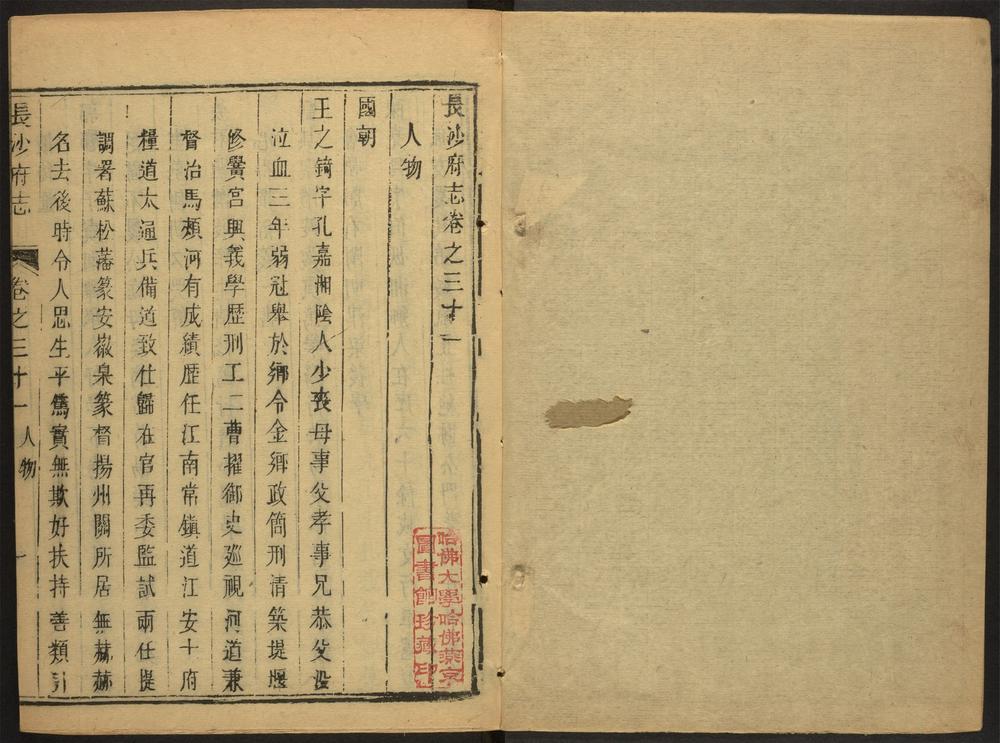 長沙府志卷之三十一
人物
國朝
王之錡字孔嘉湘陰人少喪母事父孝事兄恭父歿
泣血三年弱冠舉於鄉令金鄉政簡刑清築堤堰
修黌宮興義學歷刑工二曹擢御史廵視河道兼
督治馬頰河有成績歷任江南常鎮道江安十府
糧道太通兵備道致仕歸在官再委監試兩任提
調署蘇松藩篆安徽臬篆督揚州關所居無赫赫
名去後時令人思生平篤實無欺好扶持善類引
長沙府志
卷之三十一
人物
一
哈佛大學哈佛燕京
圖書館珍藏印